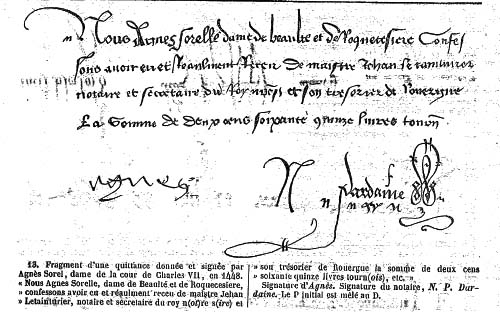 Nous Agnes Sorelle dame de beaulte et de Roquecesiere Confes
sons avoir eu et Reaulment Receu de maistre Jehan le tainturier
notaire et secretaire du Roy et son tresorier de Rouergue
La Somme de deux cens soixante quinze livres tourn
Agnes
N Dardaine
13. Fragment d'une quittance donnée et signée par
Agnès Sorel, dame de la cour de Charles VII, en 1448.
« Nous Agnes Sorelle, dame de Beaulté et de Roquecesiere,
» confessons avoir en et réaulment receu de maistre Jehan
» Letainturier, notaire et secrétaire du roy n(ot)re s(ire) et
» son trésorier de Rouergue la somme de deux cens
» soixante quinze livres tourn(ois), etc. »
Signature d'Agnès. Signature du notaire, N. P. Dar-
daine. Le P initial est mêlé au D.